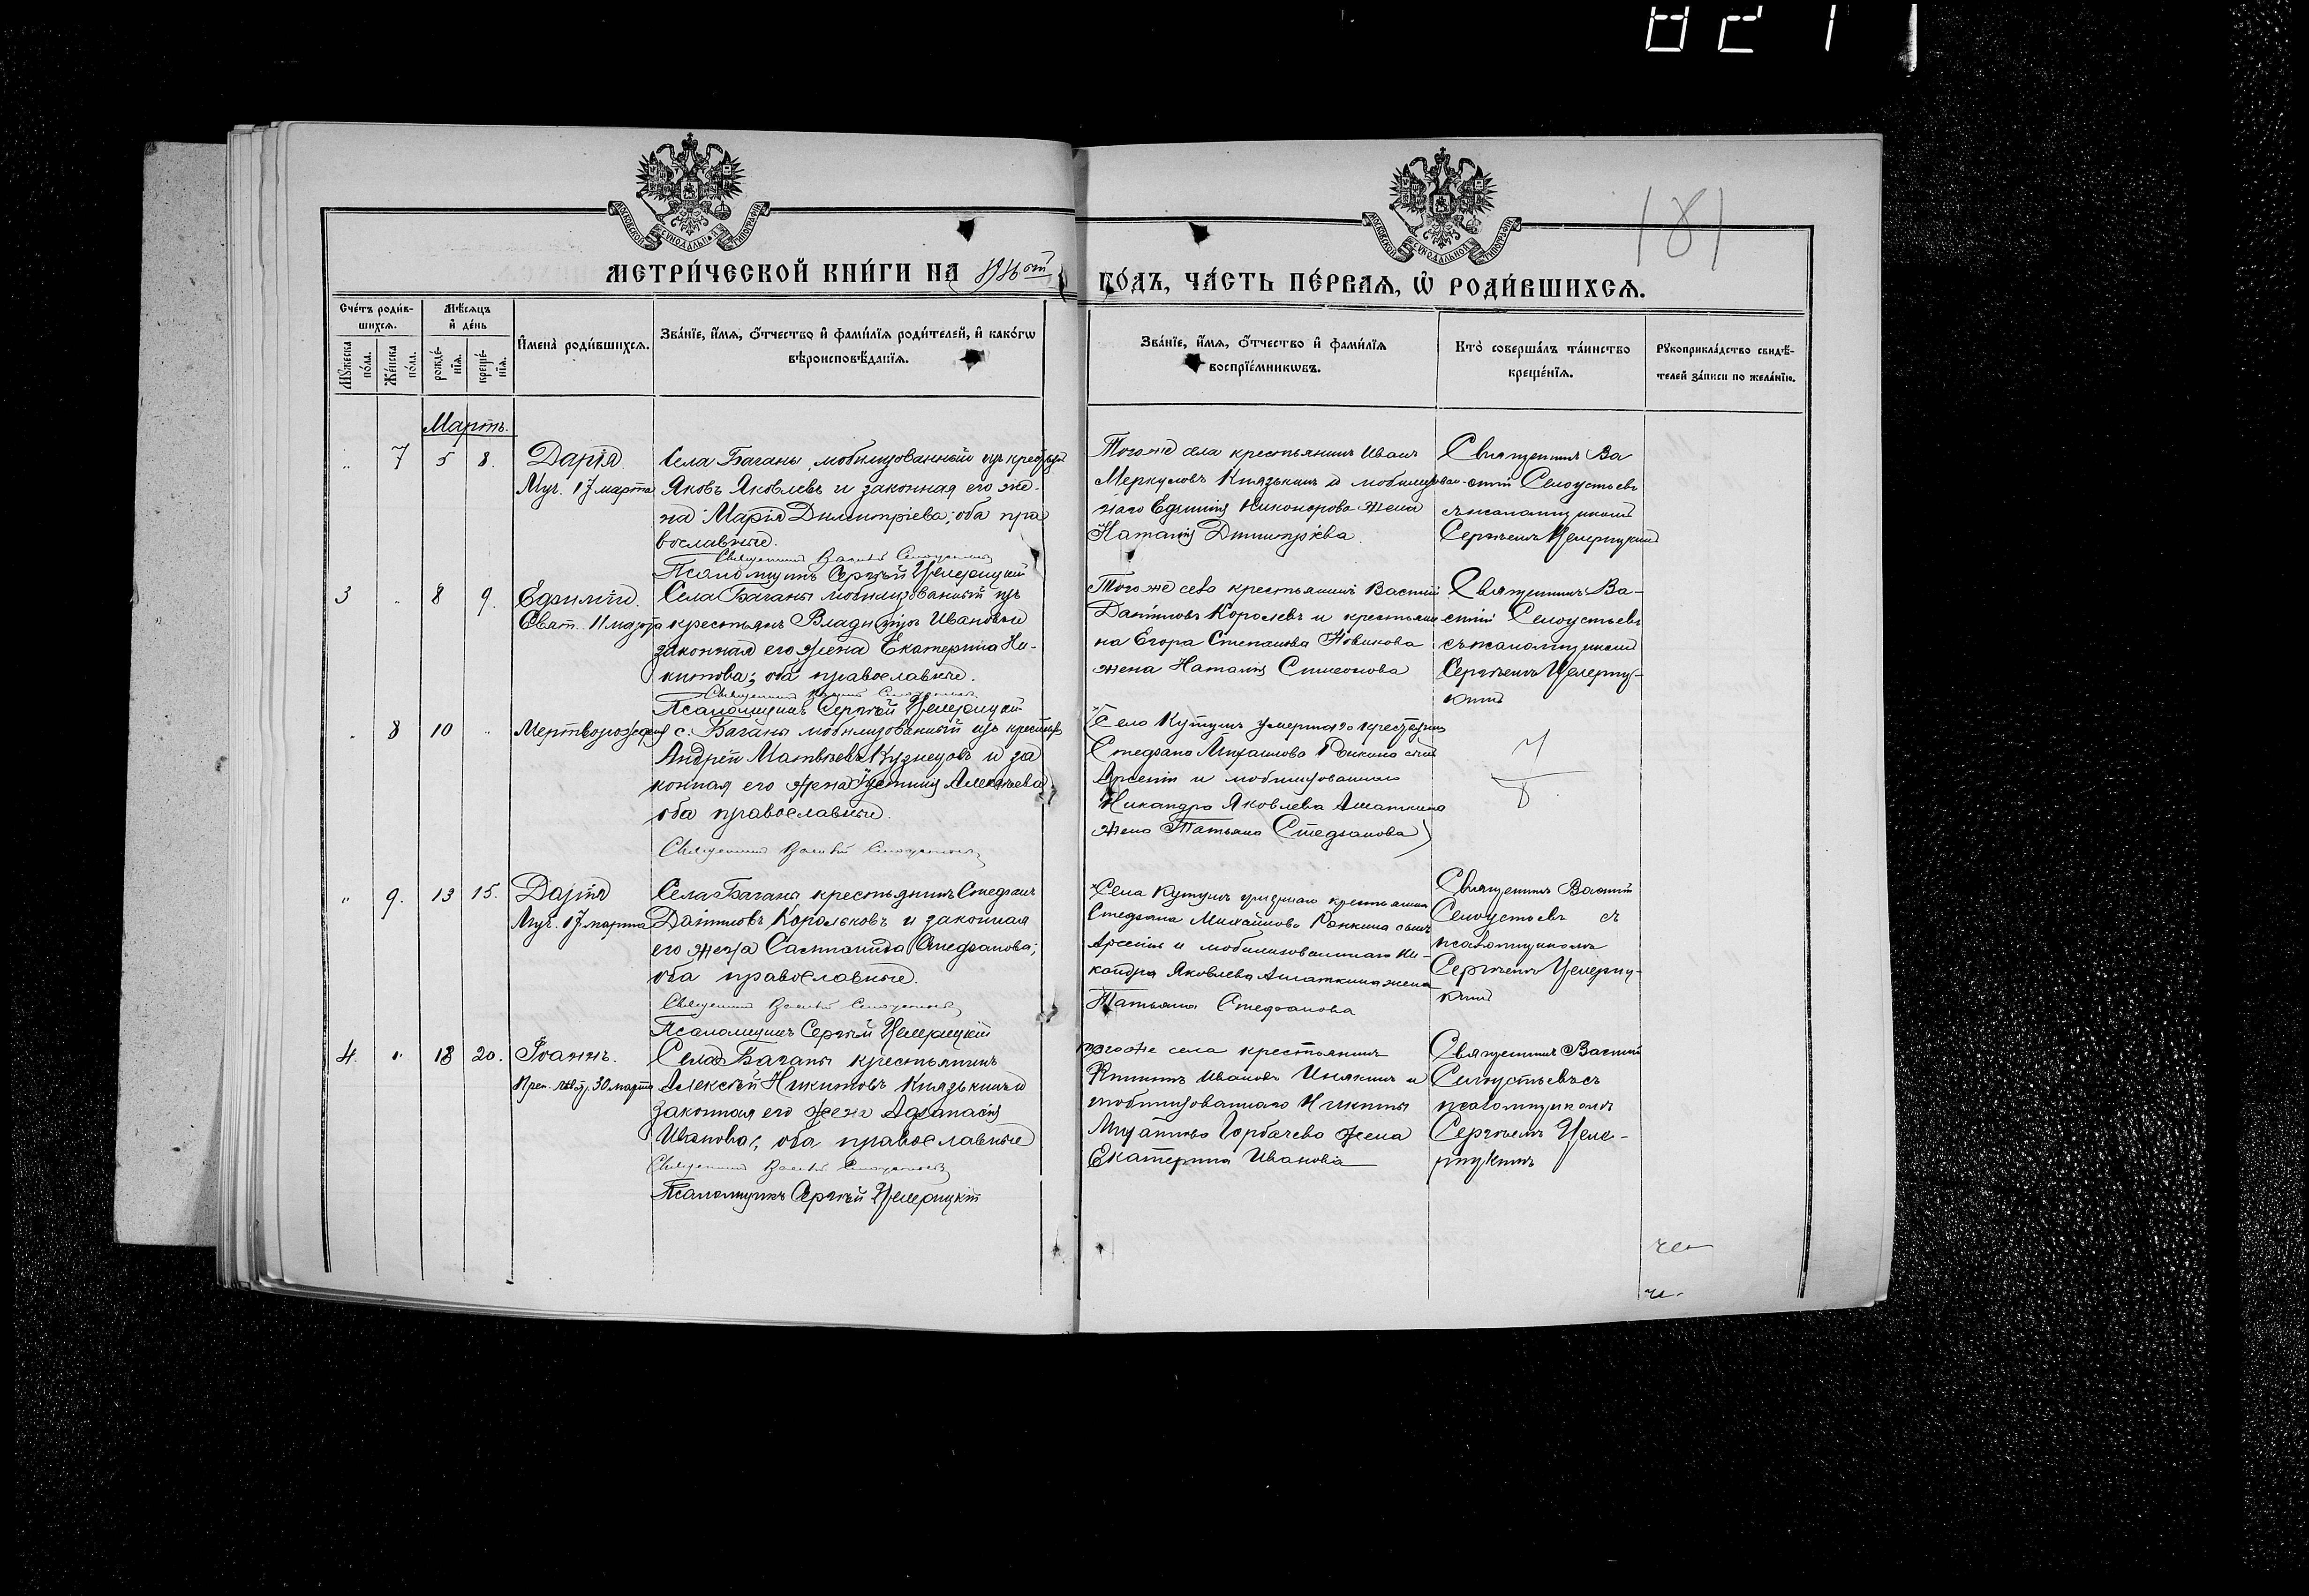 МОСКОВСКОЙ СѴНОДАЛЬНОЙ ТИПОГРАФІИ
МОСКОВСКОЙ СѴНОДАЛЬНОЙ ТИПОГРАФІИ
181
МЕТРИ́ЧЕСКОЙ КНИ́ГИ НА 1916ой ГО́ДЪ, ЧА́СТЬ ПЕ́РВАѦ, Ѡ҆ РОДИ́ВШИХСѦ.
Сче́тъ роди́в-
шихсѧ.
Мꙋ́жеска по́ла.
Же́нска по́ла.
Мѣ́сѧцъ
и҆ де́нь
рожде́-нїѧ.
креще́-нїѧ.
И҆мена̀ роди́вшихсѧ.
Зва́нїе, и҆́мѧ, о҆́тчество и҆ фами́лїѧ роди́телей, и҆ како́гѡ
вѣроисповѣ́данїѧ.
Зва́нїе, и҆́мѧ, о҆́тчество и҆ фами́лїѧ
воспрїе́мникѡвъ.
Кто̀ соверша́лъ та́инство
креще́нїѧ.
Рꙋкоприкла́дство свидѣ́-
телей за́писи по жела́нїю.
Мартъ.
" 7 5 8. Дарія
Муч. 17 марта
Села Баганы, мобилизованный изъ крестьянъ
Яковъ Яковлевъ и законная его же-
на Марія Димитріева; оба пра
вославные.
Священникъ Василій
Псаломщикъ Сергѣй
Того же села крестьянинъ Иванъ
Меркуловъ Князькинъ и мобилизован-
наго Ефимія Никонорова жена
Наталія Димитріева.
Священникъ Ва
силій
съ псаломщикомъ
Сергѣемъ
3 " 8 9. Ефимій.
Свят. 11 марта
Села Баганы мобилизованный изъ
крестьянъ Владиміръ Ивановъ и
законная его жена Екатерина Ни-
китова; оба православные.
Священникъ Василій
Псаломщикъ Сергѣй
Того же села крестьянинъ Василій
Даниловъ Королевъ и крестьяни
на Егора Степанова Новикова
жена Наталія Симеонова
Священникъ Ва-
силій
съ псаломщикомъ
Сергѣемъ
" 8 10 " Мертворожденная
с. Баганы мобилизованный изъ крестьянъ
Андрей Матвѣевъ Кузнецовъ и за
конная его жена Устинія Алексѣева
оба православные.
Священникъ Василій
(Села Кутушъ умершаго крестьянина
Стефана Михаилова сынъ
Арсеній и мобилизованнаго
Никандра Яковлева Аматкина
жена Татьяна Стефанова)
" 9. 13 15. Дарія
Муч. 17 марта
Села Баганы крестьянинъ Стефанъ
Даниловъ Корольковъ и законная
его жена Стефанова;
оба православные.
Священникъ Василій
Псаломщикъ Сергѣй
Села Кутушъ умершаго крестьянина
Стефана Михайлова сынъ
Арсеній и мобилизованнаго Ни-
кандра Яковлева Аматкина жена
Татьяна Стефанова
Священникъ Василій
съ
псаломщикомъ
Сергѣемъ
4. " 18 20. Іоаннъ.
Преп. 30 марта
Села Баганы крестьянинъ
Алексѣй Никитовъ Князькинъ и
законная его жена Афанасія
Иванова; оба православные
Священникъ Василій
Псаломщикъ Сергѣй
Того же села крестьянинъ
Иванов и
мобилизованнаго Никиты
Горбачева жена
Екатерина Иванова
Священникъ Василій
псаломщикомъ
Сергѣемъ